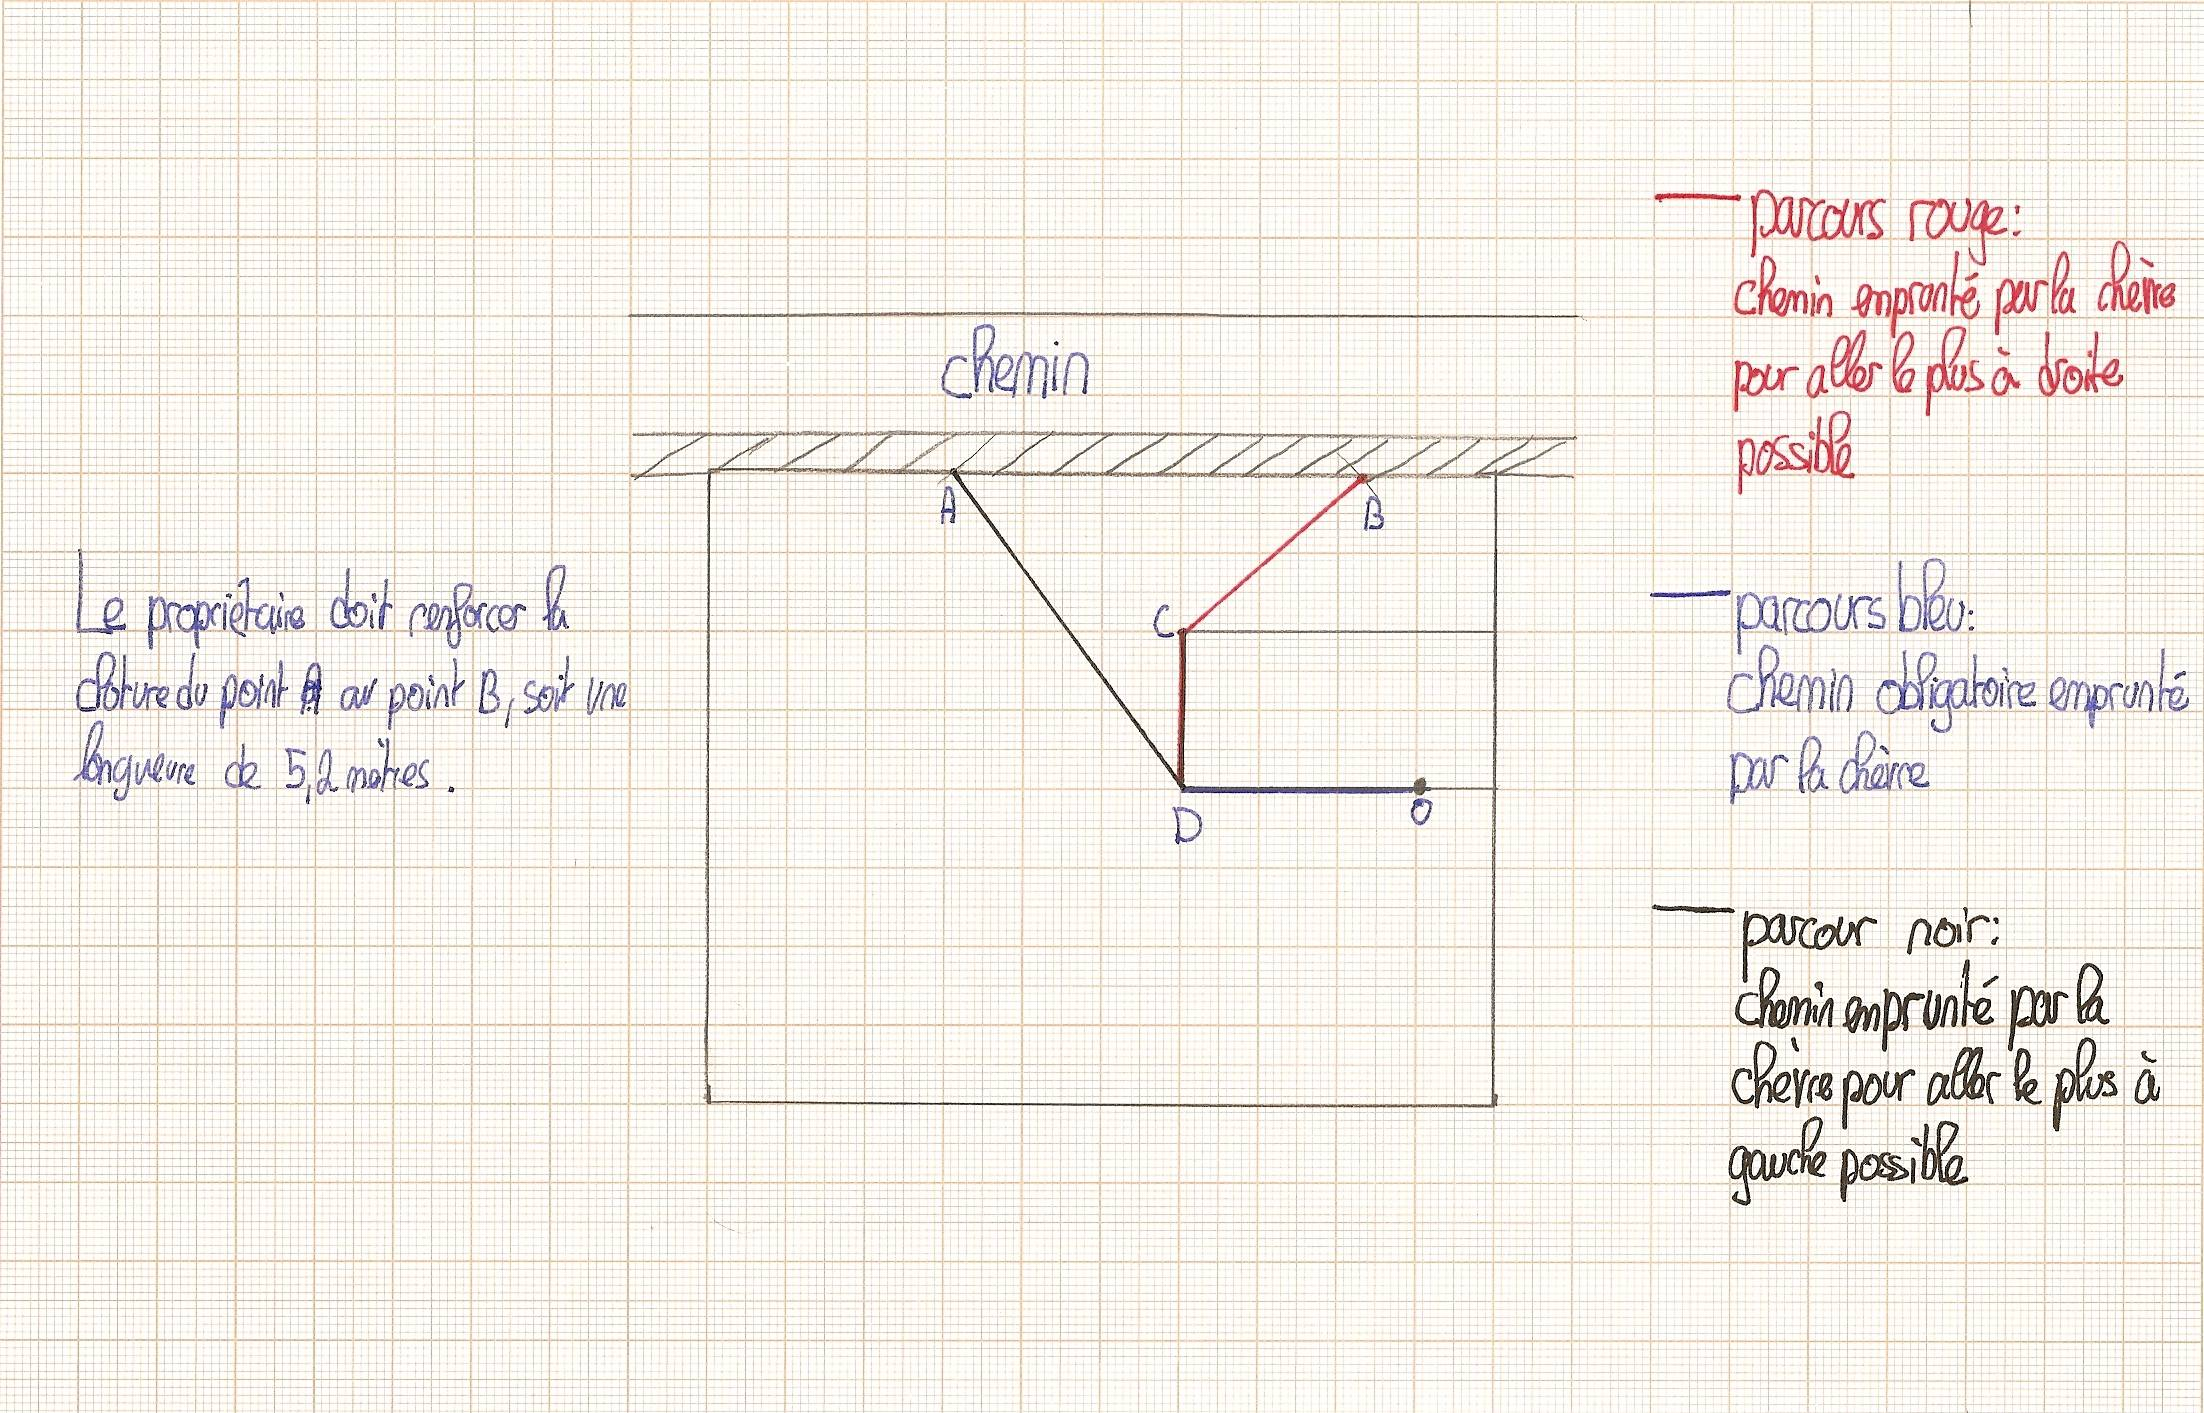 Le propriétaire doit renforcer la
cloture du point A au point B, soit une
longueure de 5,2 mètres.
chemin
A
B
C
D
O
parcours rouge:
chemin empronté par la chèvre
pour aller le plus à droite
possible
parcours bleu:
chemin obligatoire emprunté
par la chèvre
parcour noir:
chemin emprunté par la
chèvre pour aller le plus à
gauche possible